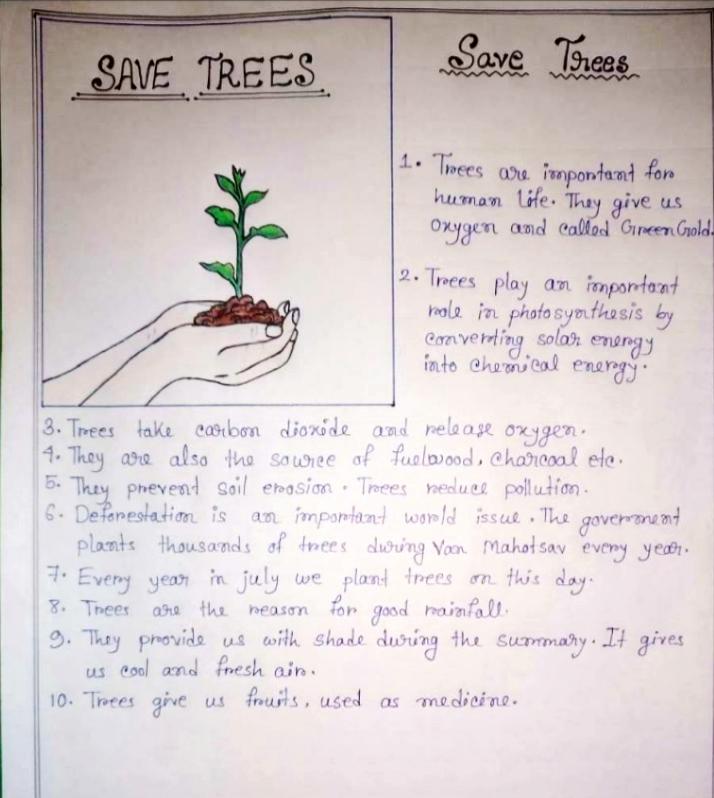 SAVE TREES
Save Trees
1. Trees are important for
human life. They give us
oxygen and called Green Gold.
2. Trees play an important
role in photosynthesis by
converting solar energy
into chemical energy.
3. Trees take carbon dioxide and release oxygen.
4. They are also the source of fuelwood, charcoal etc.
5. They prevent soil erosion. Trees reduce pollution.
6. Deforestation is an important world issue. The government
plants thousands of trees during Van Mahotsav every year.
7. Every year in july we plant trees on this day.
8. Trees are the reason for good rainfall.
9. They provide us with shade during the summary. It gives
us cool and fresh air.
10. Trees give us fruits, used as medicine.